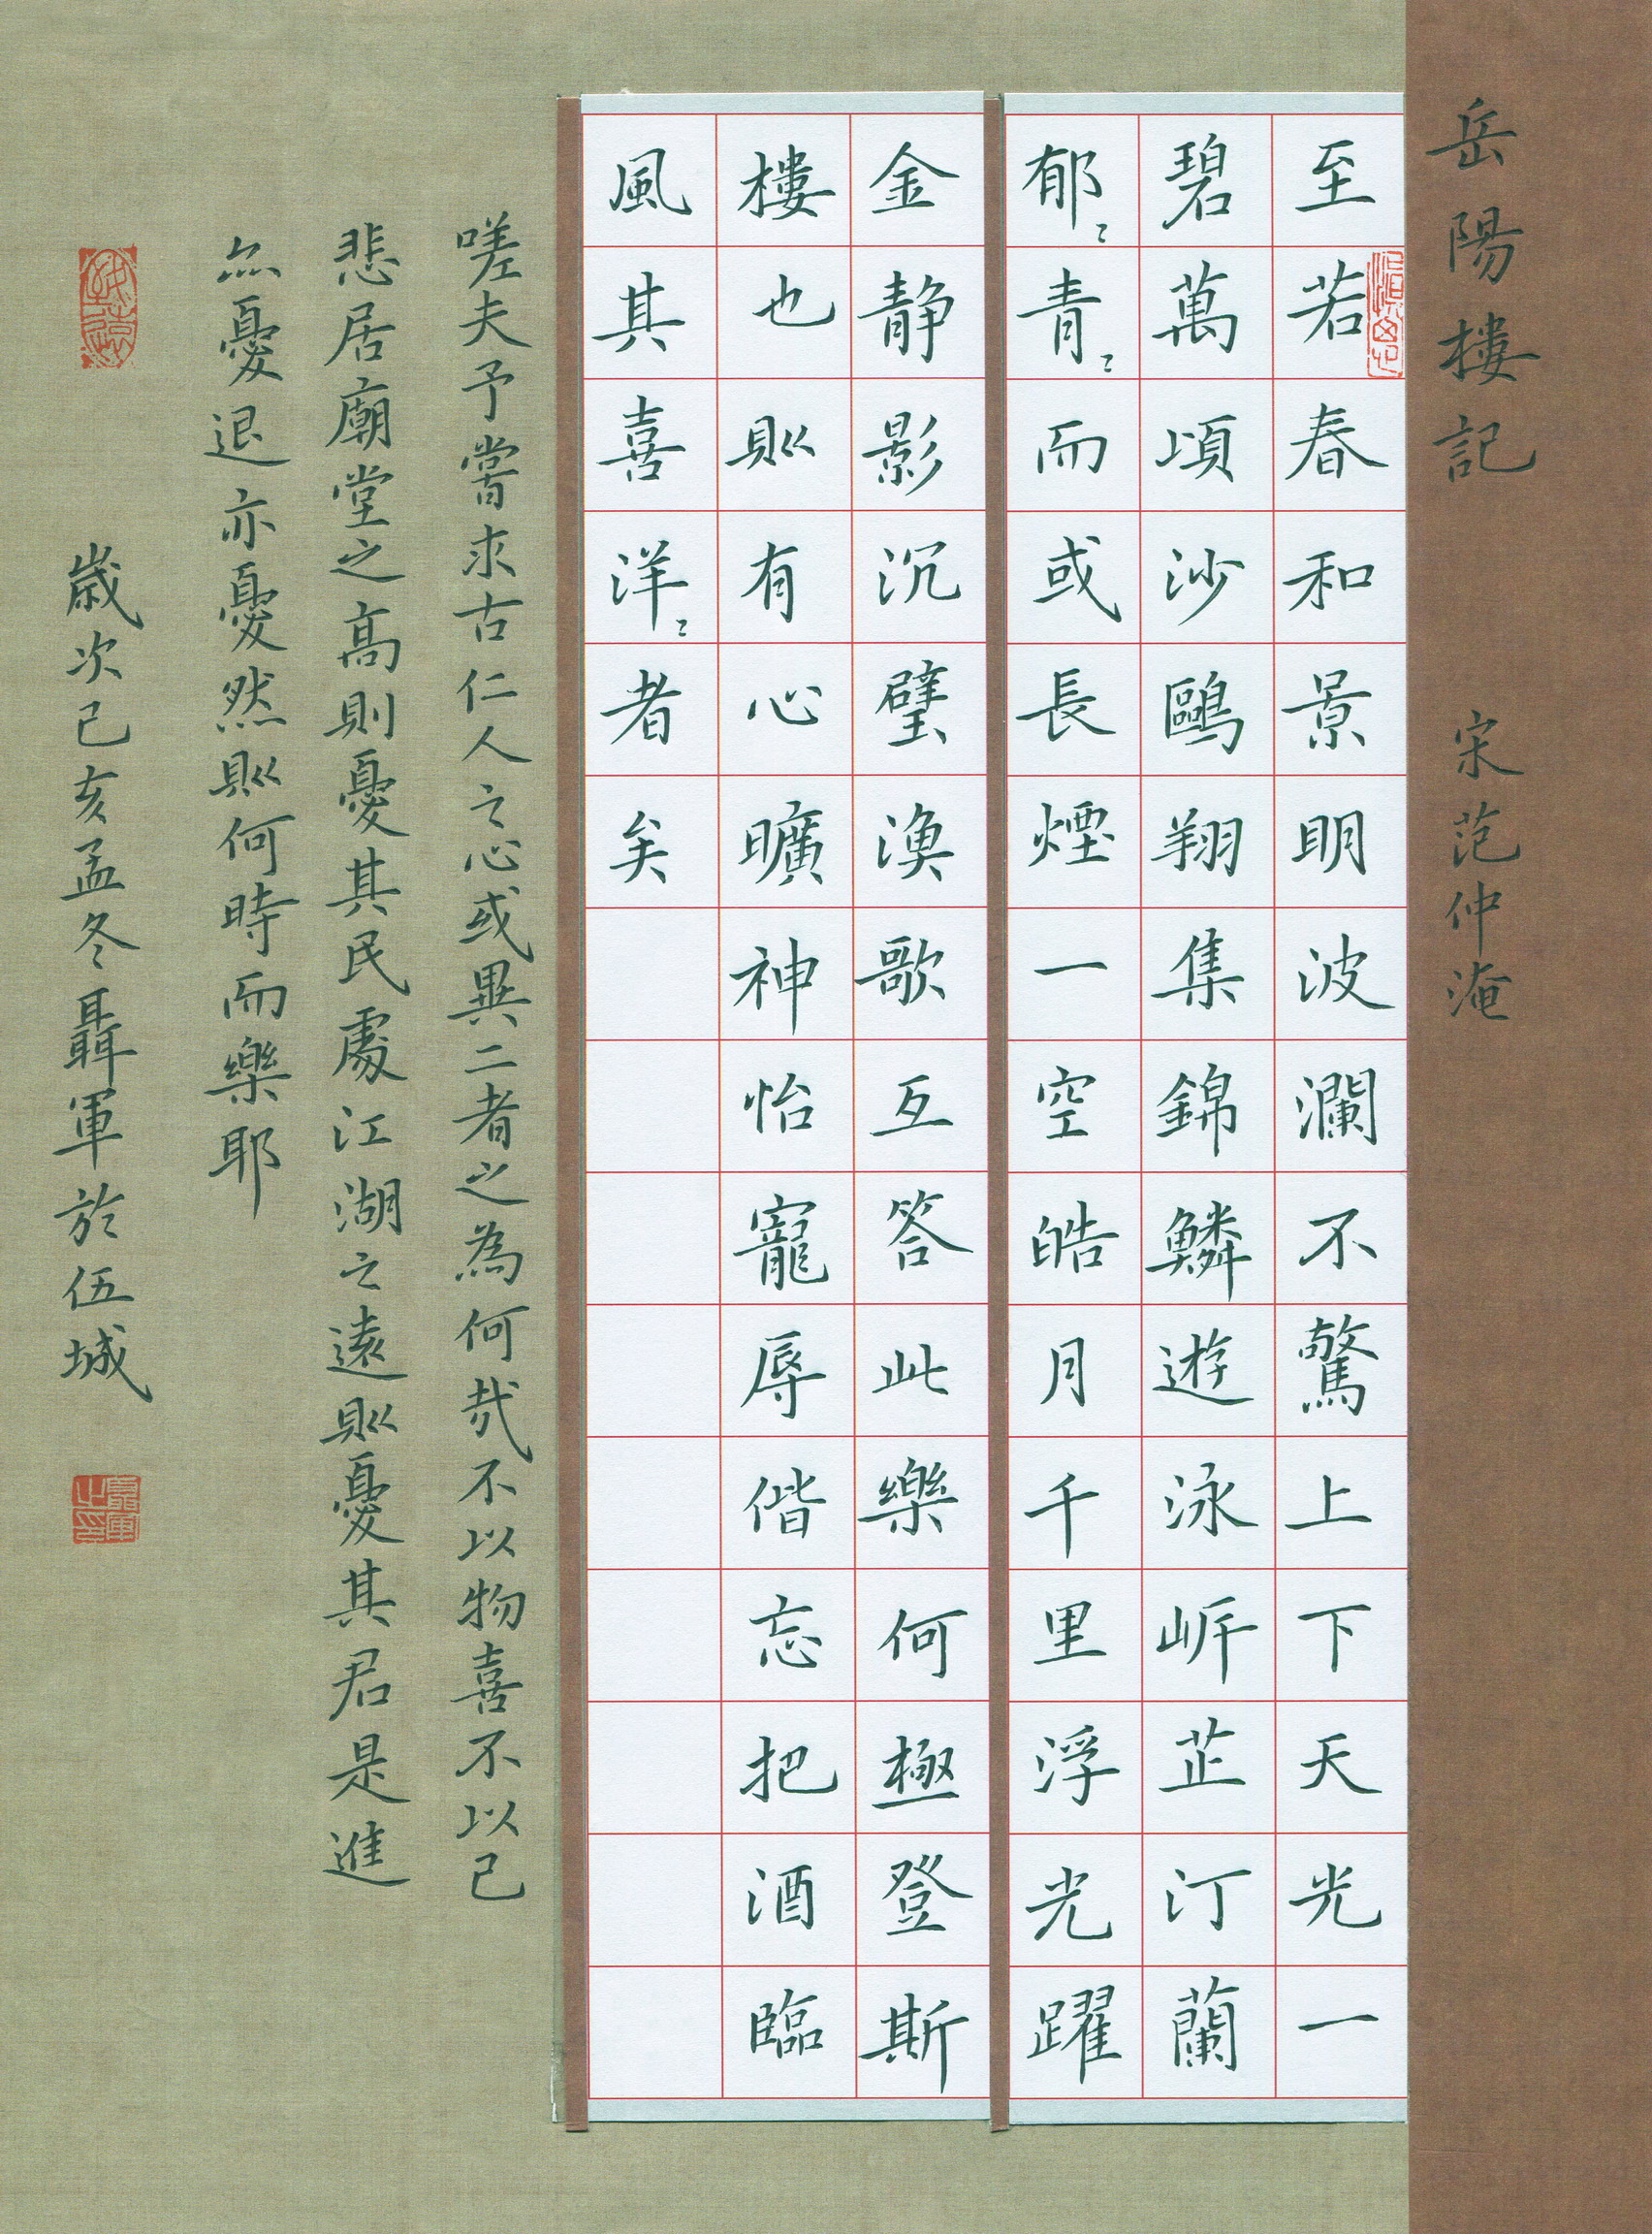 岳陽樓記 宋 范仲淹
至若春和景明波瀾不驚上下天光一
碧萬頃沙鷗翔集錦鱗遊泳岍芷汀蘭
郁〻青〻而或長煙一空皓月千里浮光躍
金静影沉璧漁歌互答此樂何極登斯
樓也則有心曠神怡寵辱偕忘把酒臨
風其喜洋〻者矣
嗟夫予嘗求古仁人之心或異二者之為何哉不以物喜不以己
悲居廟堂之高則憂其民處江湖之遠則憂其君是進
亦憂退亦憂然則何時而樂耶
歲次己亥孟冬聶軍於伍城